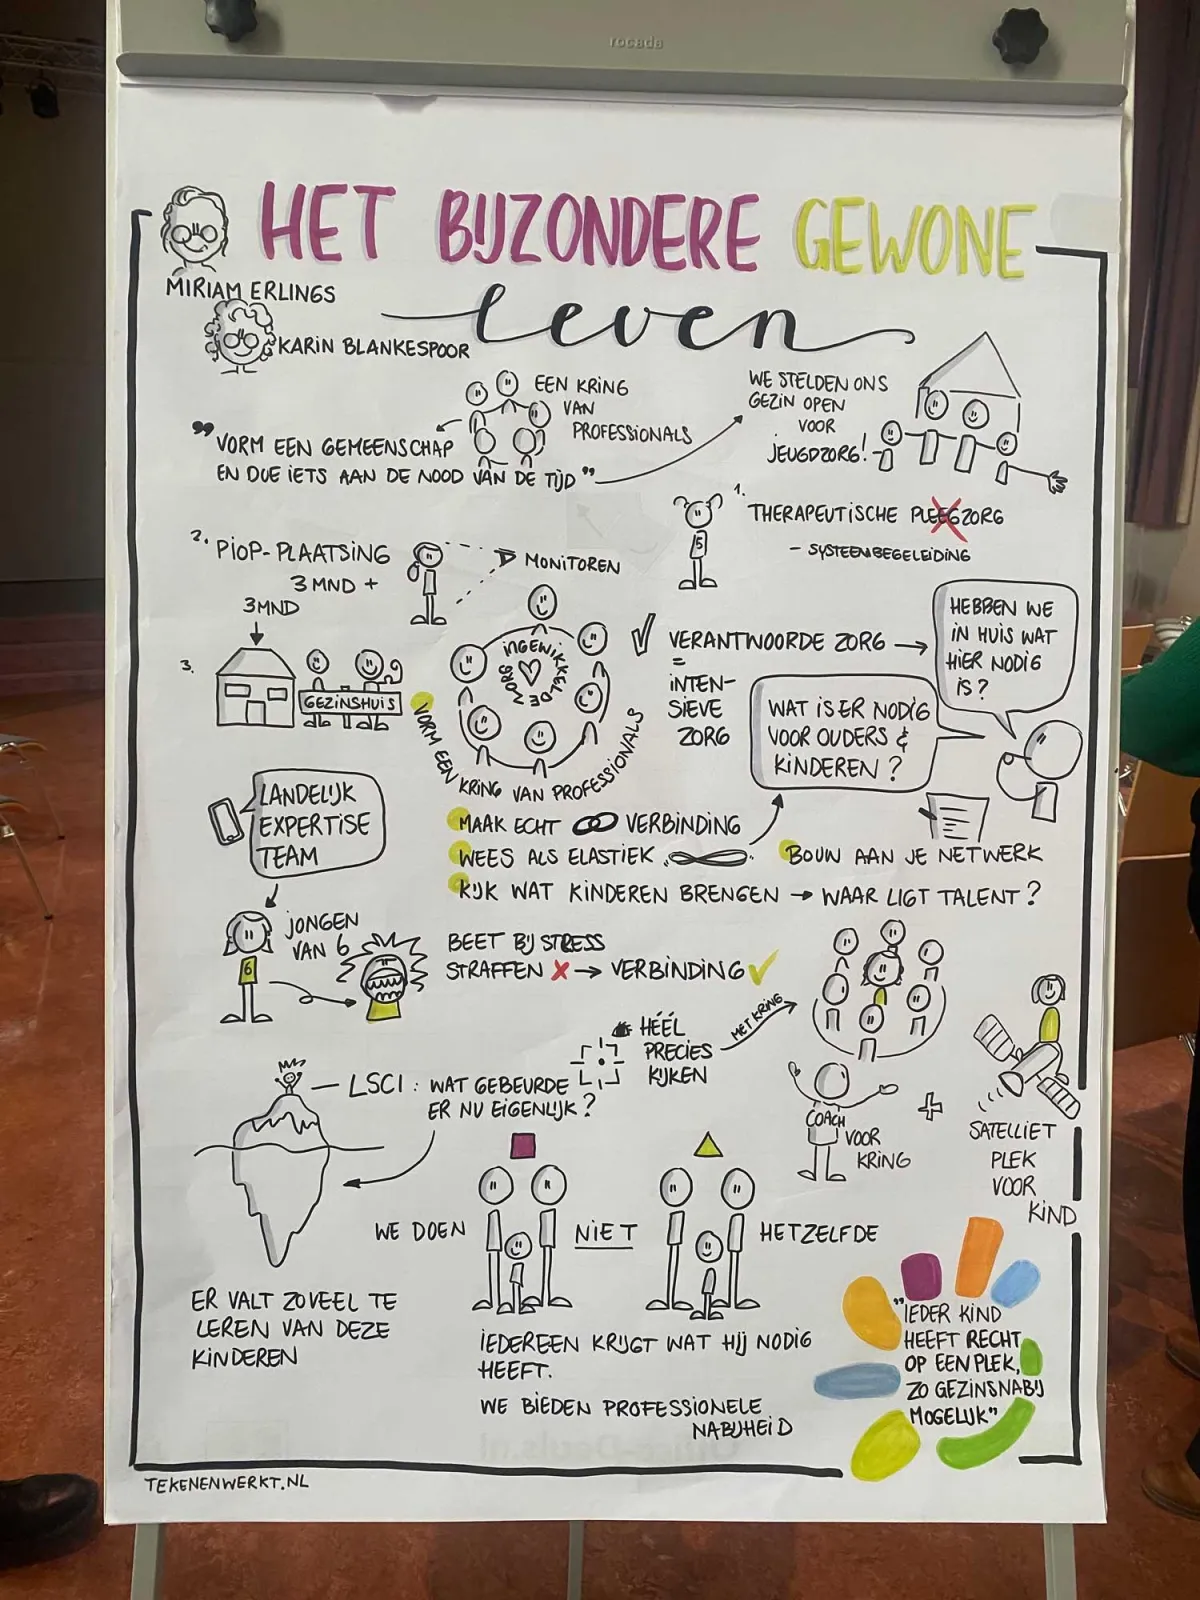 rocada
HET BIJZONDERE GEWONE
leven
MIRIAM ERLINGS
KARIN BLANKESPOOR
EEN KRING
VAN
PROFESSIONALS
"VORM EEN GEMEENSCHAP
EN DOE IETS AAN DE NOOD VAN DE TIJD"
WE STELDEN ONS
GEZIN OPEN
VOOR
JEUGDZORG!
1. THERAPEUTISCHE PLEEGZORG
- SYSTEEMBEGELEIDING
5
2. PIOP-PLAATSING
3 MND +
MONITOREN
3MND
3.
GEZINSHUIS
INGEWIKKELDE
ZORG
VORM EEN KRING VAN PROFESSIONALS
VERANTWOORDE ZORG →
=
INTEN-
SIEVE
ZORG
HEBBEN WE
IN HUIS WAT
HIER NODIG
IS?
WAT IS ER NODIG
VOOR OUDERS &
KINDEREN?
LANDELIJK
EXPERTISE
TEAM
MAAK ECHT VERBINDING
WEES ALS ELASTIEK
BOUW AAN JE NETWERK
KIJK WAT KINDEREN BRENGEN → WAAR LIGT TALENT?
JONGEN
VAN 6
6
BEET BIJ STRESS
STRAFFEN X → VERBINDING ✓
HÉÉL
PRECIES
KIJKEN
MET KRING
LSCI: WAT GEBEURDE
ER NU EIGENLIJK?
COACH
VOOR
KRING
+
SATELLIET
PLEK
VOOR
KIND
WE DOEN NIET HETZELFDE
ER VALT ZOVEEL TE
LEREN VAN DEZE
KINDEREN
IEDEREEN KRIJGT WAT HIJ NODIG
HEEFT.
WE BIEDEN PROFESSIONELE
NABIJHEID
"IEDER KIND
HEEFT RECHT
OP EEN PLEK,
ZO GEZINSNABIJ
MOGELIJK"
TEKENENWERKT.NL